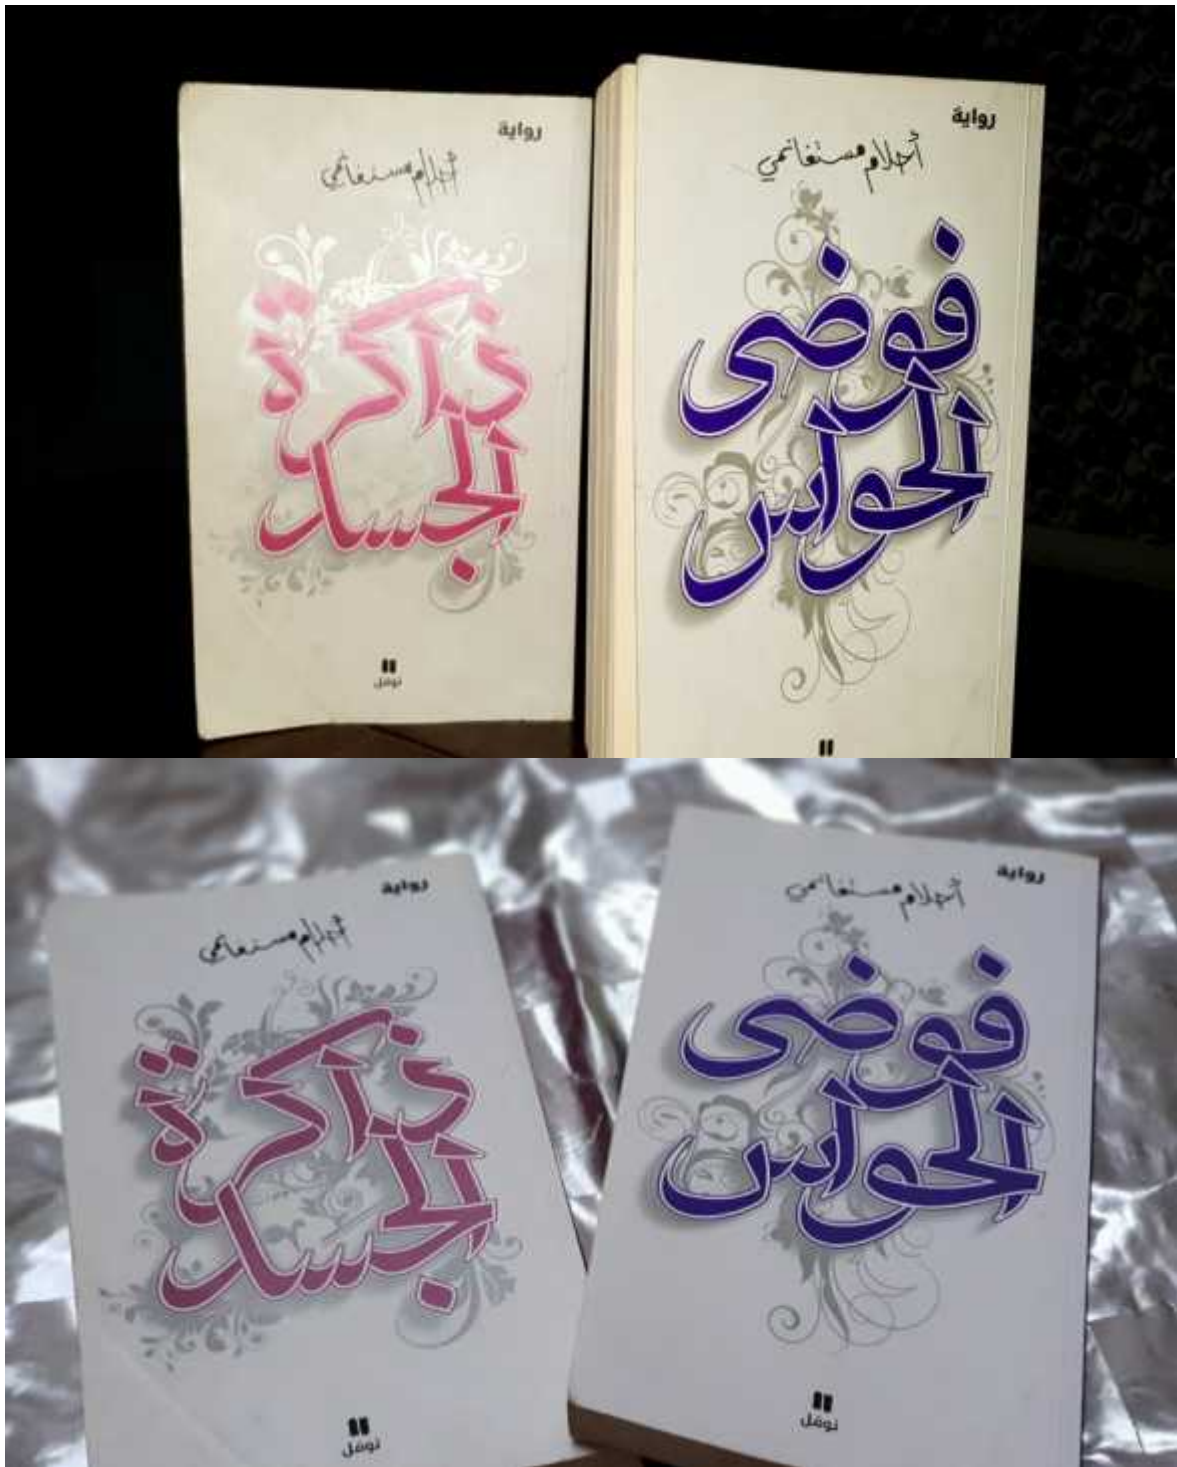 رواية
أحلام مستغانمي
ذاكرة
الجسد
نوفل
رواية
أحلام مستغانمي
فوضى
الحواس
رواية
أحلام مستغانمي
ذاكرة
الجسد
نوفل
رواية
أحلام مستغانمي
فوضى
الحواس
نوفل